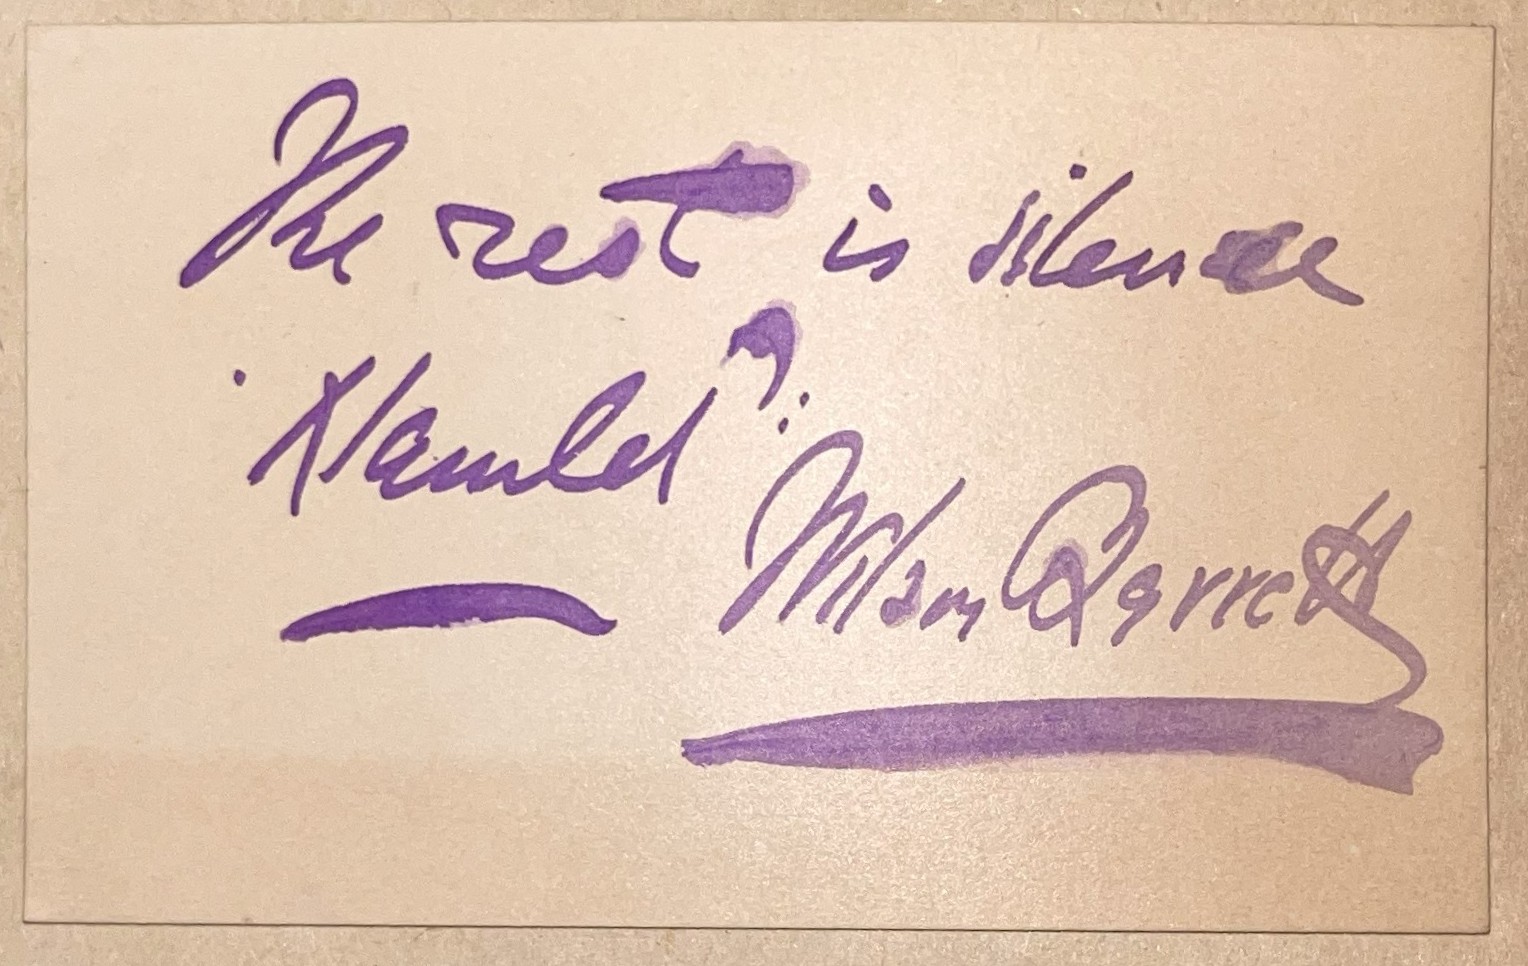 The rest is silence
"Hamlet".
Wilson Barrett